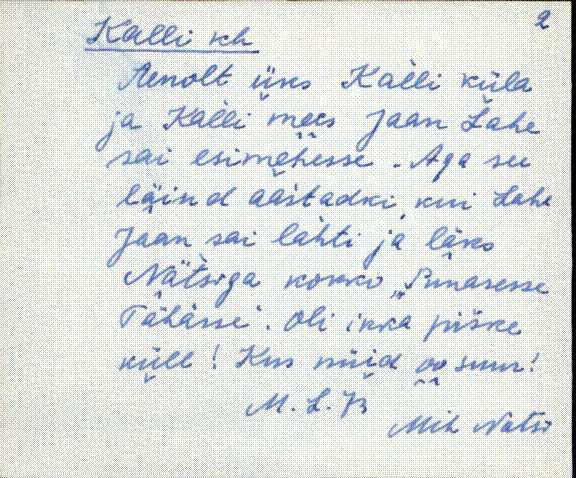 2
Kalli kh
Aenolt üks Kal̀li küla
ja Kal̀li mees Jaan Lahe
sai esimehesse. Aga see
läind aastadki, kui Lahe
Jaan sai lahti ja läks
Nätsiga kokko „Punasesse
Tähässe". Oli ikka piske
küll! Kus nüid oo suur!
M. L. B
Mih Natsi